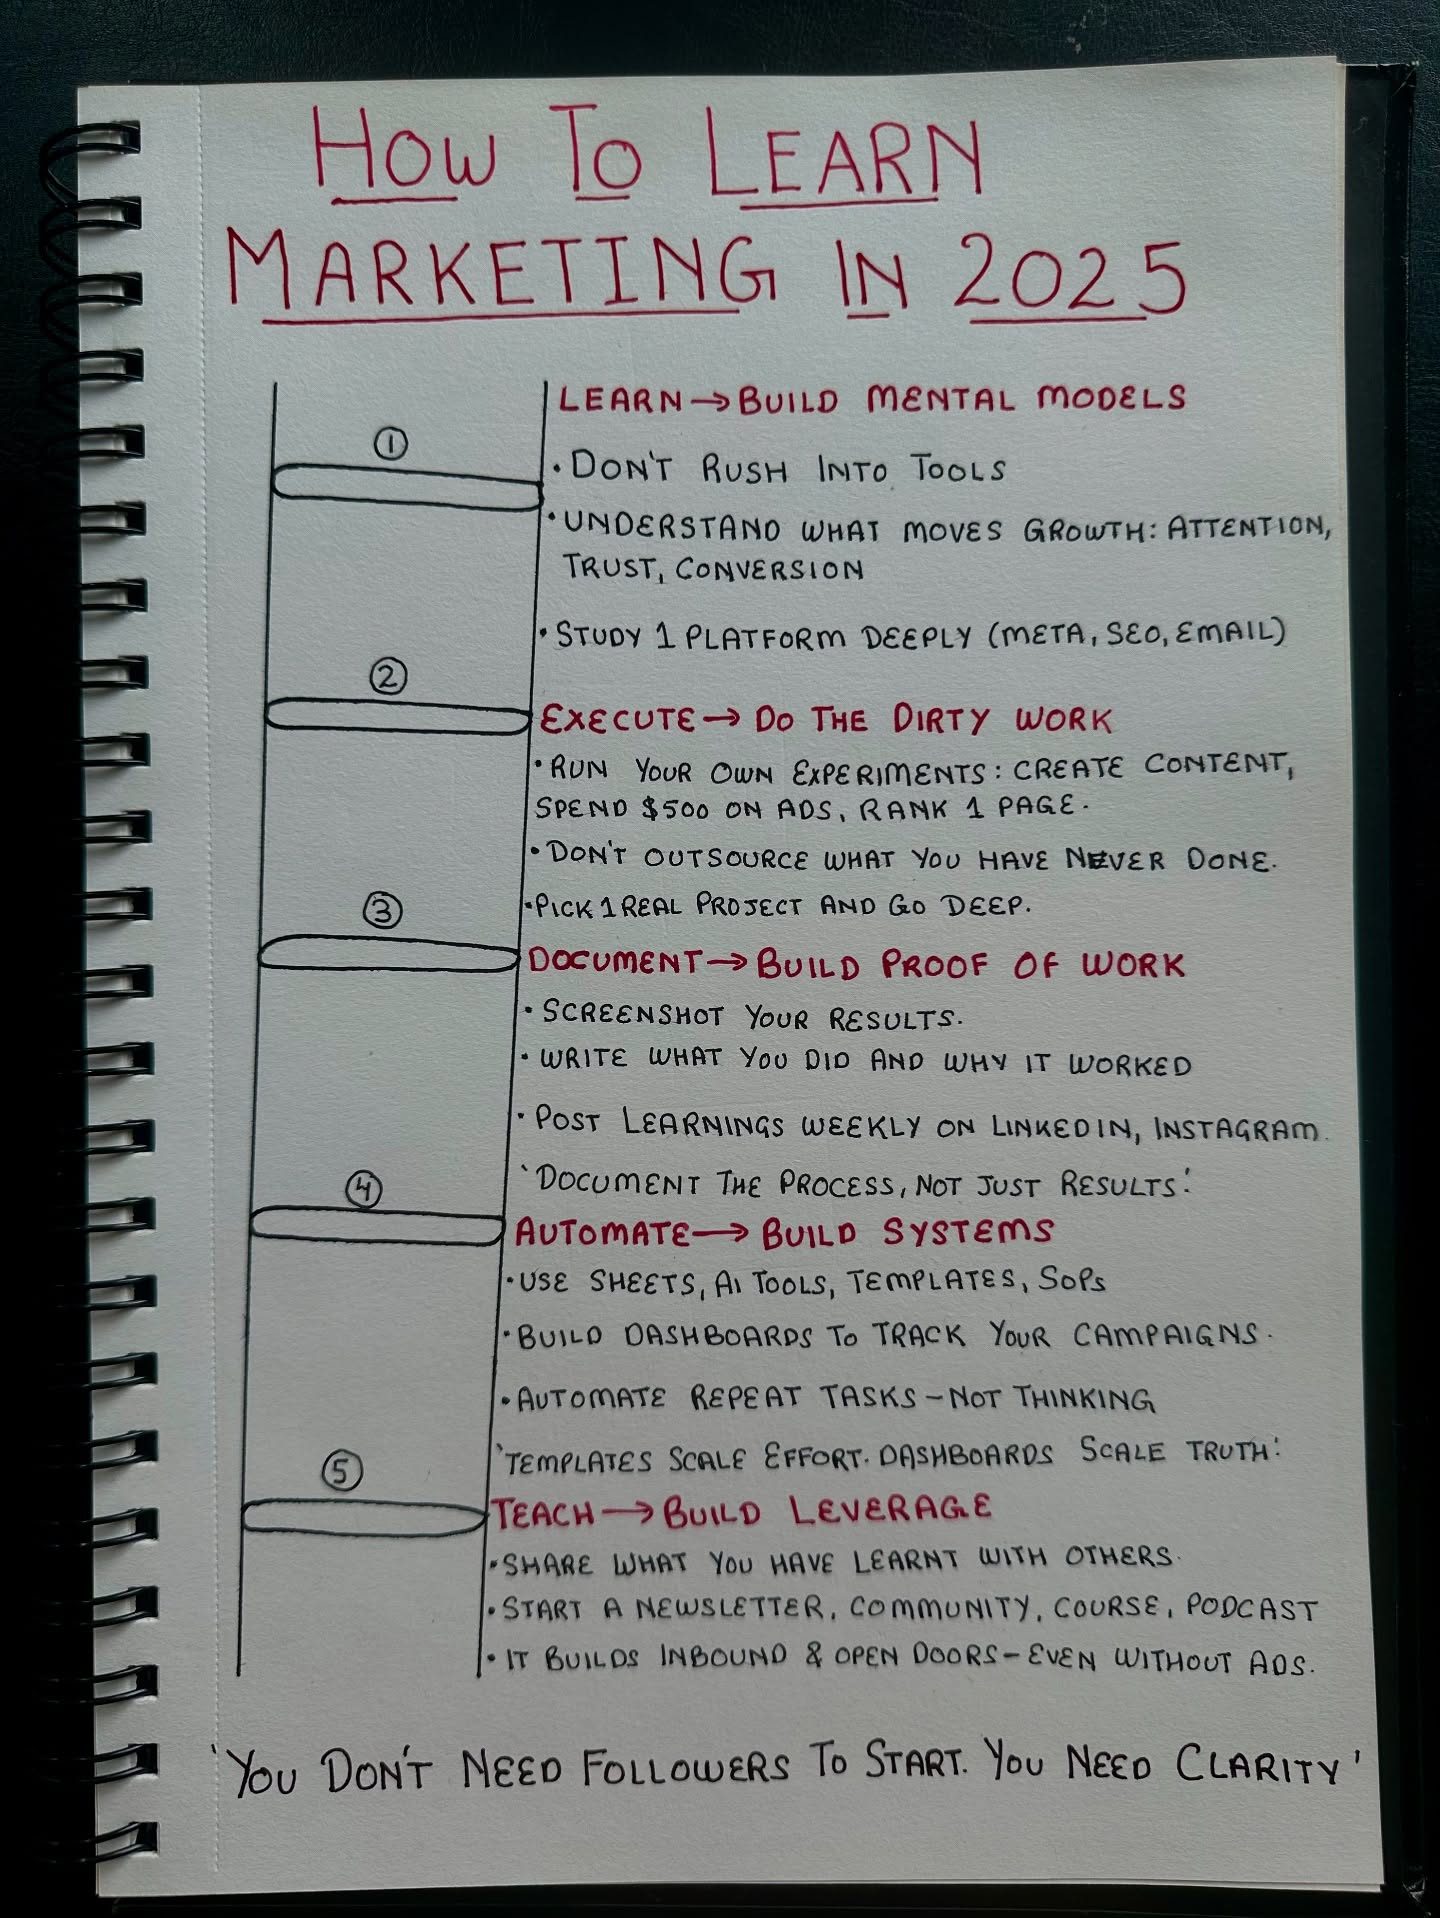 HOW TO LEARN
MARKETING IN 2025
LEARN → BUILD MENTAL MODELS
①
• DON'T RUSH INTO TOOLS
• UNDERSTAND WHAT MOVES GROWTH: ATTENTION,
TRUST, CONVERSION
• STUDY 1 PLATFORM DEEPLY (META, SEO, EMAIL)
②
EXECUTE → DO THE DIRTY WORK
• RUN YOUR OWN EXPERIMENTS: CREATE CONTENT,
SPEND $500 ON ADS, RANK 1 PAGE.
• DON'T OUTSOURCE WHAT YOU HAVE NEVER DONE.
• PICK 1 REAL PROJECT AND GO DEEP.
③
DOCUMENT → BUILD PROOF OF WORK
• SCREENSHOT YOUR RESULTS.
• WRITE WHAT YOU DID AND WHY IT WORKED
• POST LEARNINGS WEEKLY ON LINKEDIN, INSTAGRAM.
'DOCUMENT THE PROCESS, NOT JUST RESULTS.'
④
AUTOMATE → BUILD SYSTEMS
• USE SHEETS, AI TOOLS, TEMPLATES, SOPs
• BUILD DASHBOARDS TO TRACK YOUR CAMPAIGNS.
• AUTOMATE REPEAT TASKS – NOT THINKING
'TEMPLATES SCALE EFFORT. DASHBOARDS SCALE TRUTH.'
⑤
TEACH → BUILD LEVERAGE
• SHARE WHAT YOU HAVE LEARNT WITH OTHERS.
• START A NEWSLETTER, COMMUNITY, COURSE, PODCAST
• IT BUILDS INBOUND & OPEN DOORS – EVEN WITHOUT ADS.
'YOU DON'T NEED FOLLOWERS TO START. YOU NEED CLARITY'